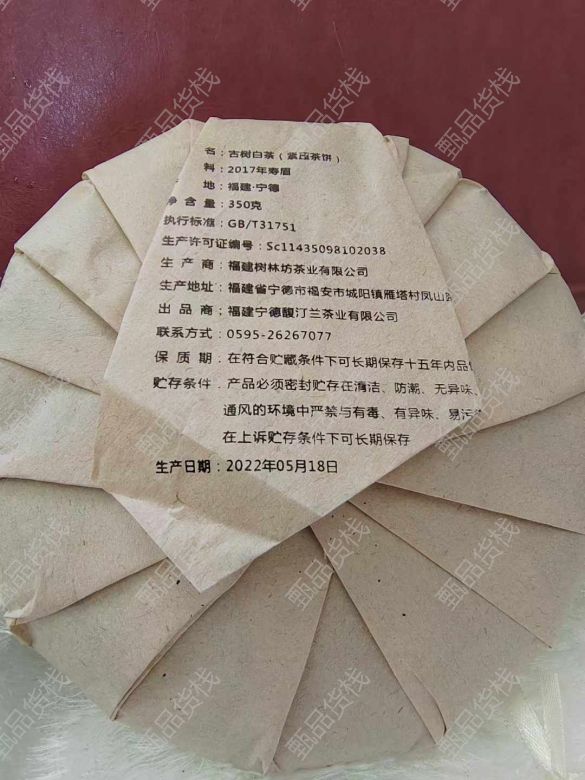 名：古树白茶（紧压茶饼）
料：2017年寿眉
地：福建·宁德
净 含 量：350克
执行标准：GB/T31751
生产许可证编号：Sc11435098102038
生 产 商：福建树林坊茶业有限公司
生产地址：福建省宁德市福安市城阳镇雁塔村凤山路
出 品 商：福建宁德馥汀兰茶业有限公司
联系方式：0595-26267077
保 质 期．在符合贮藏条件下可长期保存十五年内品
贮存条件．产品必须密封贮存在清洁、防潮、无异味、
通风的环境中严禁与有毒、有异味、易污
在上诉贮存条件下可长期保存
生产日期：2022年05月18日
甄品货栈